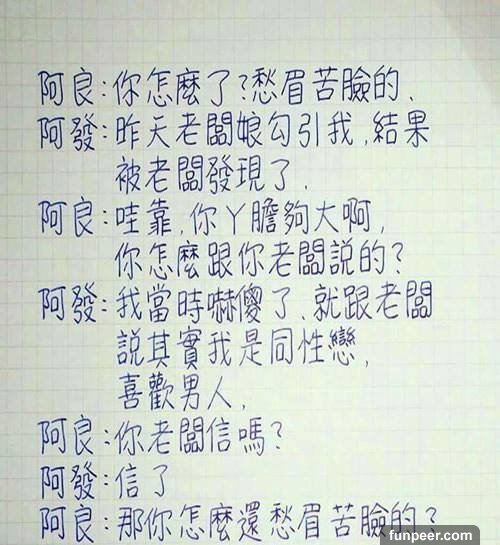 阿良:你怎麼了?愁眉苦臉的.
阿發:昨天老闆娘勾引我,結果
被老闆發現了.
阿良:哇靠,你丫膽夠大啊,
你怎麼跟你老闆說的?
阿發:我當時嚇傻了.就跟老闆
說其實我是同性戀,
喜歡男人,
阿良:你老闆信嗎?
阿發:信了
阿良:那你怎麼還愁眉苦臉的?
funpeer.com